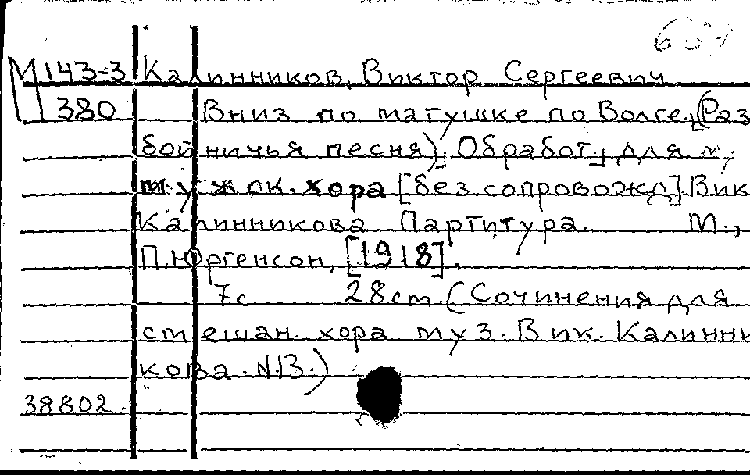 М143-3 Калинников, Виктор Сергеевич
380 Вниз по матушке по Волге. (Раз
бойничья песня). Обработ. для
мужск. хора [без сопровожд] Вик
Калинникова Партитура. М.,
П. Юргенсон, [1918].
7с 28cm (Сочинения для
смешан. хора муз. Вик. Калинни
кова. N13.)
38802